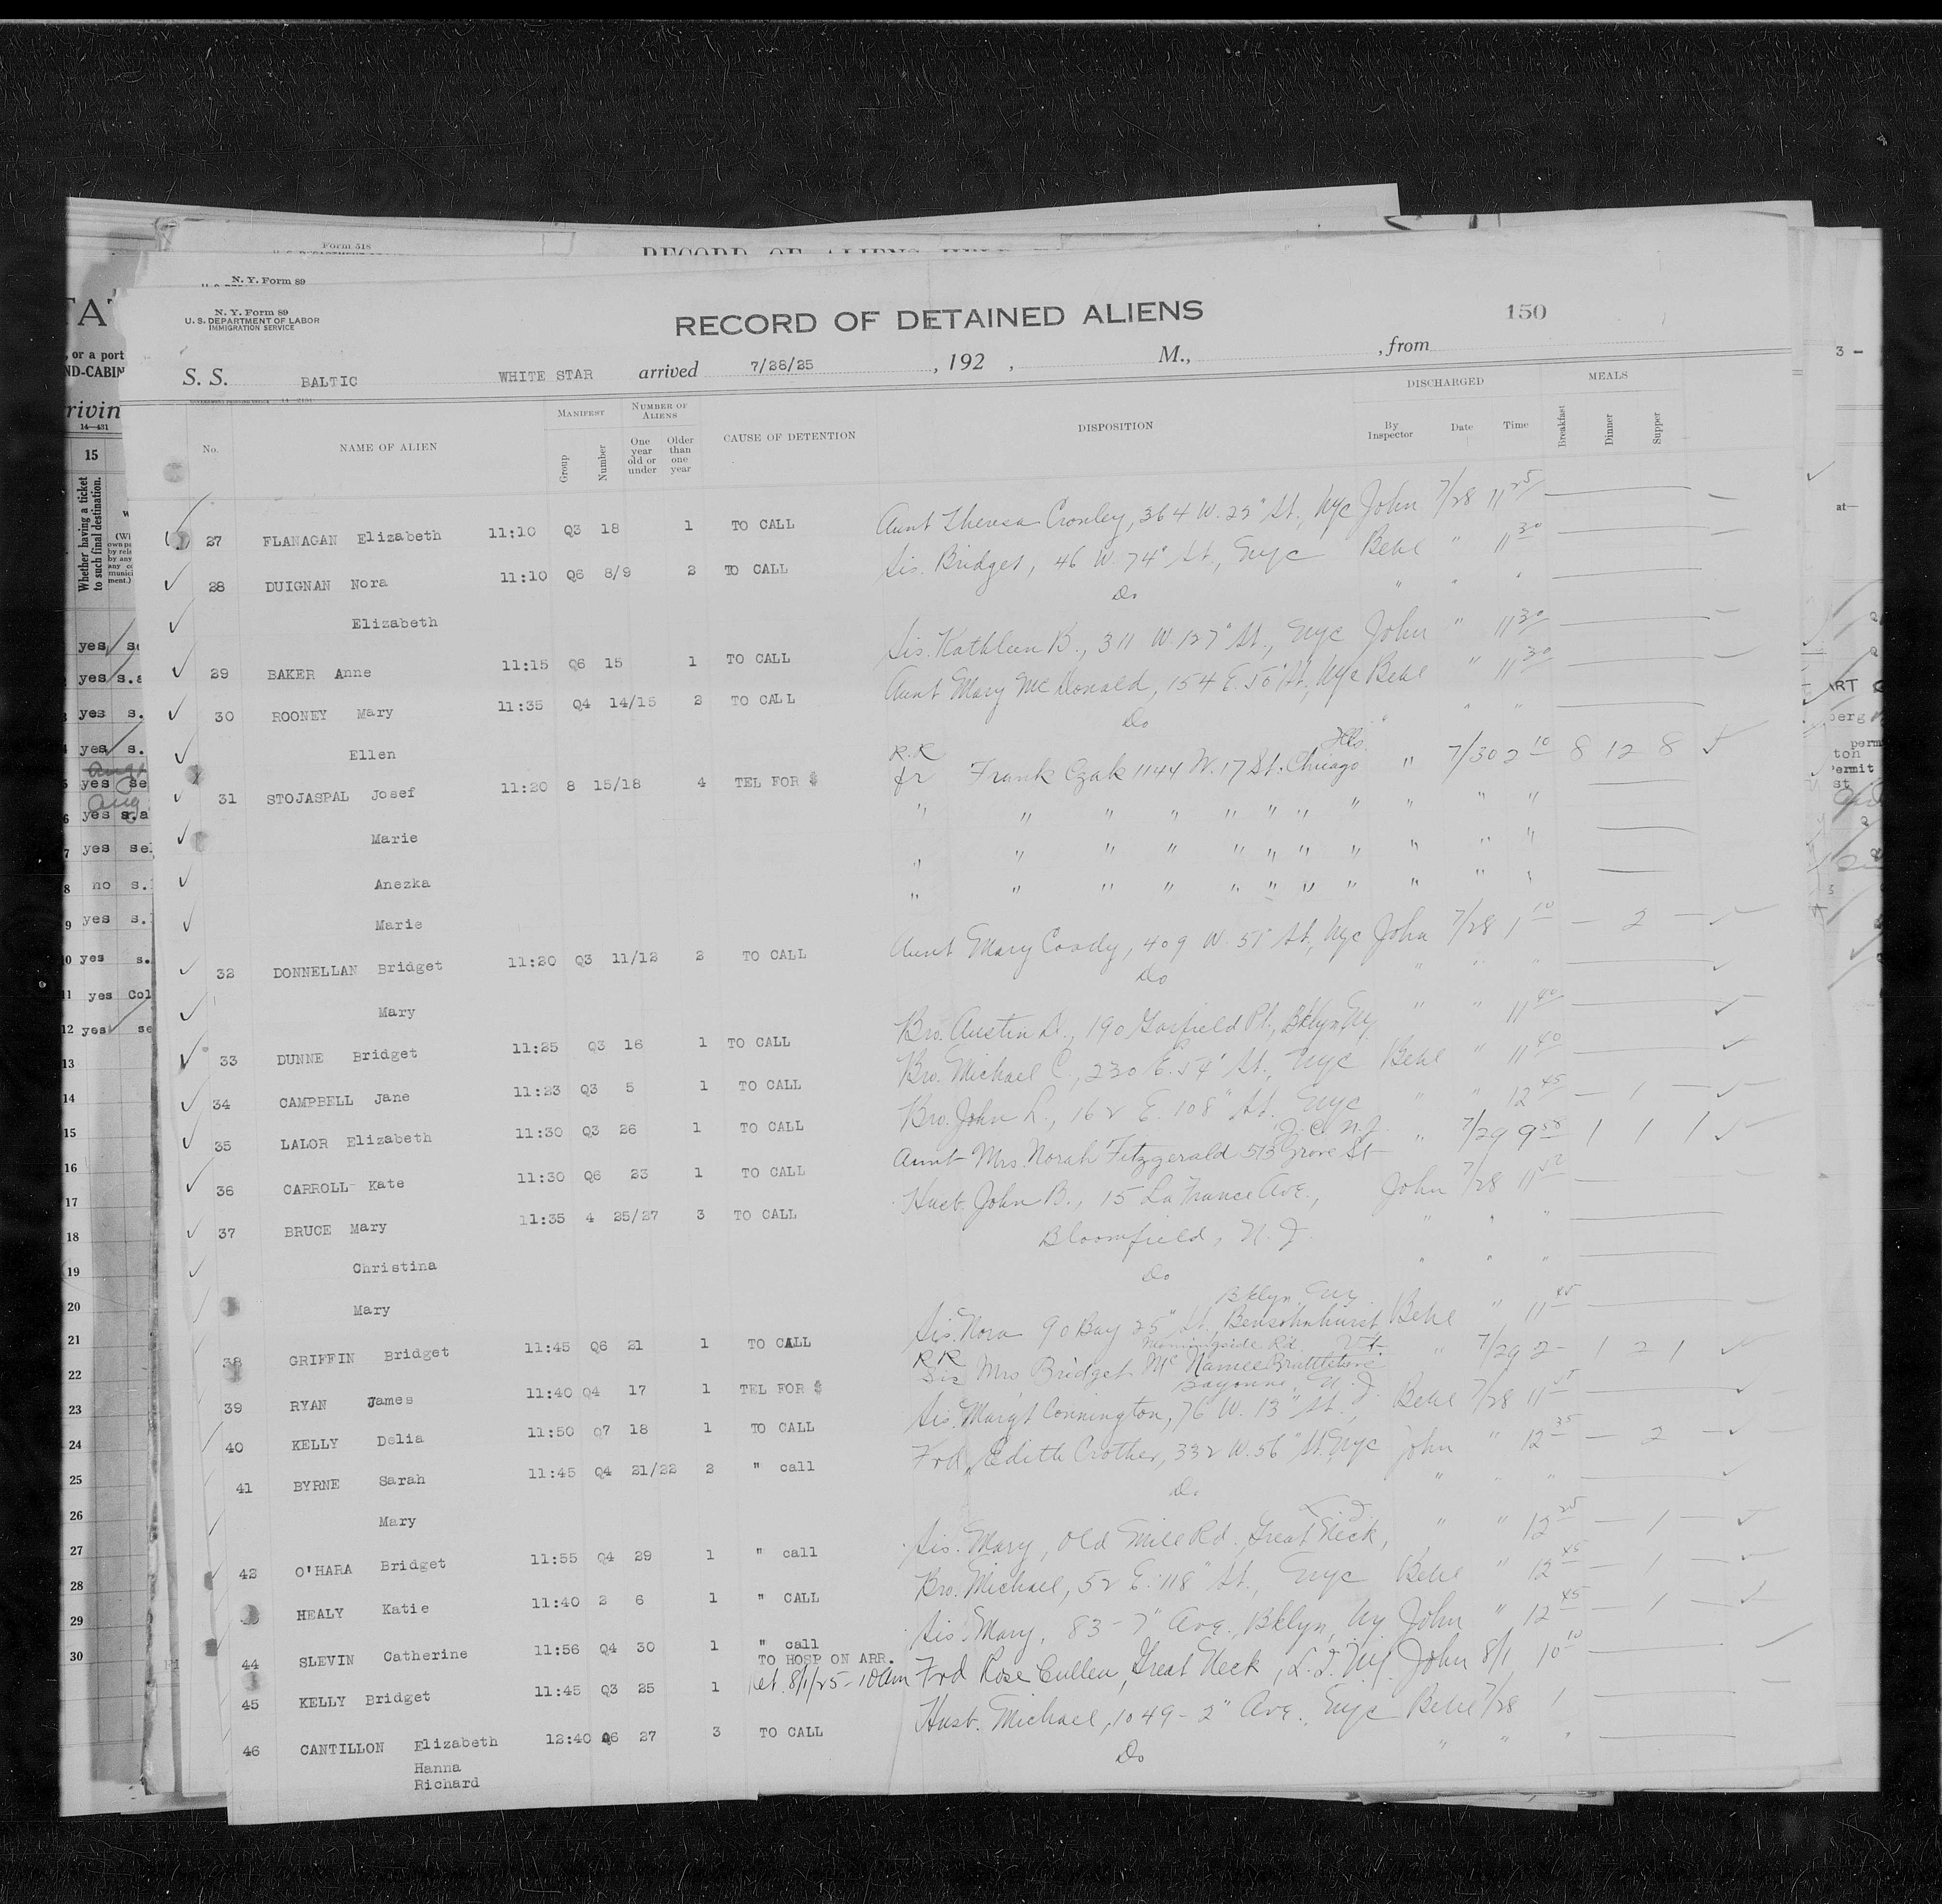 Form 518
RECORD OF ALIENS HELD
N. Y. Form 89
N. Y. Form 89
U. S. DEPARTMENT OF LABOR
IMMIGRATION SERVICE
RECORD OF DETAINED ALIENS
150
S. S. BALTIC WHITE STAR arrived 7/28/25, 192 , M., , from
No. NAME OF ALIEN MANIFEST Group Number NUMBER OF ALIENS One year old or under Older than one year CAUSE OF DETENTION DISPOSITION DISCHARGED By Inspector Date Time MEALS Breakfast Dinner Supper
27 FLANAGAN Elizabeth 11:10 Q3 18 1 TO CALL Aunt Theresa Cronley, 364 W. 25" St., NYC John 7/28 11 25
28 DUIGNAN Nora 11:10 Q6 8/9 2 TO CALL Sis. Bridget, 46 W. 74" St., NYC Behl " 11 30
Elizabeth Do " " "
29 BAKER Anne 11:15 Q6 15 1 TO CALL Sis. Kathleen B., 311 W. 127" St., NYC John " 11 30
30 ROONEY Mary 11:35 Q4 14/15 2 TO CALL Aunt Mary McDonald, 154 E. St., NYC Behl " 11 30
Ellen Do " " "
31 STOJASPAL Josef 11:20 8 15/18 4 TEL FOR $ R.R fr Frank Czak 1144 W. 17 St. Chicago Ills. " 7/30 2 10 8 12 8
Marie " " " " " " " " " " "
Anezka " " " " " " " " " " "
Marie " " " " " " " " " " "
32 DONNELLAN Bridget 11:20 Q3 11/12 2 TO CALL Aunt Mary Coady, 409 W. 51" St., NYC John 7/28 1 10 — 2 —
Mary Do " " "
33 DUNNE Bridget 11:25 Q3 16 1 TO CALL Bro. Austin D., 190 Garfield Pl., Bklyn NY " " 11 40
34 CAMPBELL Jane 11:23 Q3 5 1 TO CALL Bro. Michael C., 230 E. 54" St., NYC Behl " 11 40
35 LALOR Elizabeth 11:30 Q3 26 1 TO CALL Bro. John L., 162 E. 108" St. NYC " " 12 45 — 1 —
36 CARROLL Kate 11:30 Q6 23 1 TO CALL Aunt Mrs. Norah Fitzgerald 513 Grove St J.C. N.J. " 7/29 9 58 1 1 1
37 BRUCE Mary 11:35 4 25/27 3 TO CALL Husb. John B., 15 La France Ave., John 7/28 11
Christina Bloomfield, N. J. " " "
Mary Do " " "
38 GRIFFIN Bridget 11:45 Q6 21 1 TO CALL Sis. Nora 90 Bay 25" St., Bensonhurst Bklyn, NY Behl " 11 45
39 RYAN James 11:40 Q4 17 1 TEL FOR $ RR Sis Mrs Bridget McNamee Morningside Rd. Brattleboro Vt. " 7/29 2 — 1 2 1
40 KELLY Delia 11:50 Q7 18 1 TO CALL Sis. Margt Connington, 76 W. 13" St., Bayonne, N. J. Behl 7/28 11
41 BYRNE Sarah 11:45 Q4 21/22 2 " call Frd. Edith Crother, 332 W. 56" St. NYC John " 12 35 — 2 —
Mary Do " " "
42 O'HARA Bridget 11:55 Q4 29 1 " call Sis. Mary, Old Mile Rd. Great Neck, " " 12 25 — 1 —
HEALY Katie 11:40 2 6 1 " CALL Bro. Michael, 52 E. 118" St., NYC Behl " 12 45 — 1 —
44 SLEVIN Catherine 11:56 Q4 30 1 " call Sis. Mary, 83 - 7" Ave., Bklyn, NY John " 12 45 — 1 —
45 KELLY Bridget 11:45 Q3 25 1 TO HOSP ON ARR. Ret. 8/1/25 - 10 am Frd Rose Cullen, Great Neck, L. I. NY John 8/1 10 10
46 CANTILLON Elizabeth 12:40 Q6 27 3 TO CALL Husb. Michael, 1049 - 2" Ave., NYC Behl 7/28 1
Hanna Do " " "
Richard
, or a port
ND-CABIN
14—431
15
Whether having a ticket to such final destination.
yes
yes s.a
yes s.
yes s.
yes se
6 yes s.a
7 yes se
8 no s.
9 yes s.
10 yes s.
11 yes Col
12 yes se
13
14
15
16
17
18
19
20
21
22
23
24
25
26
27
28
29
30
3 —
at—